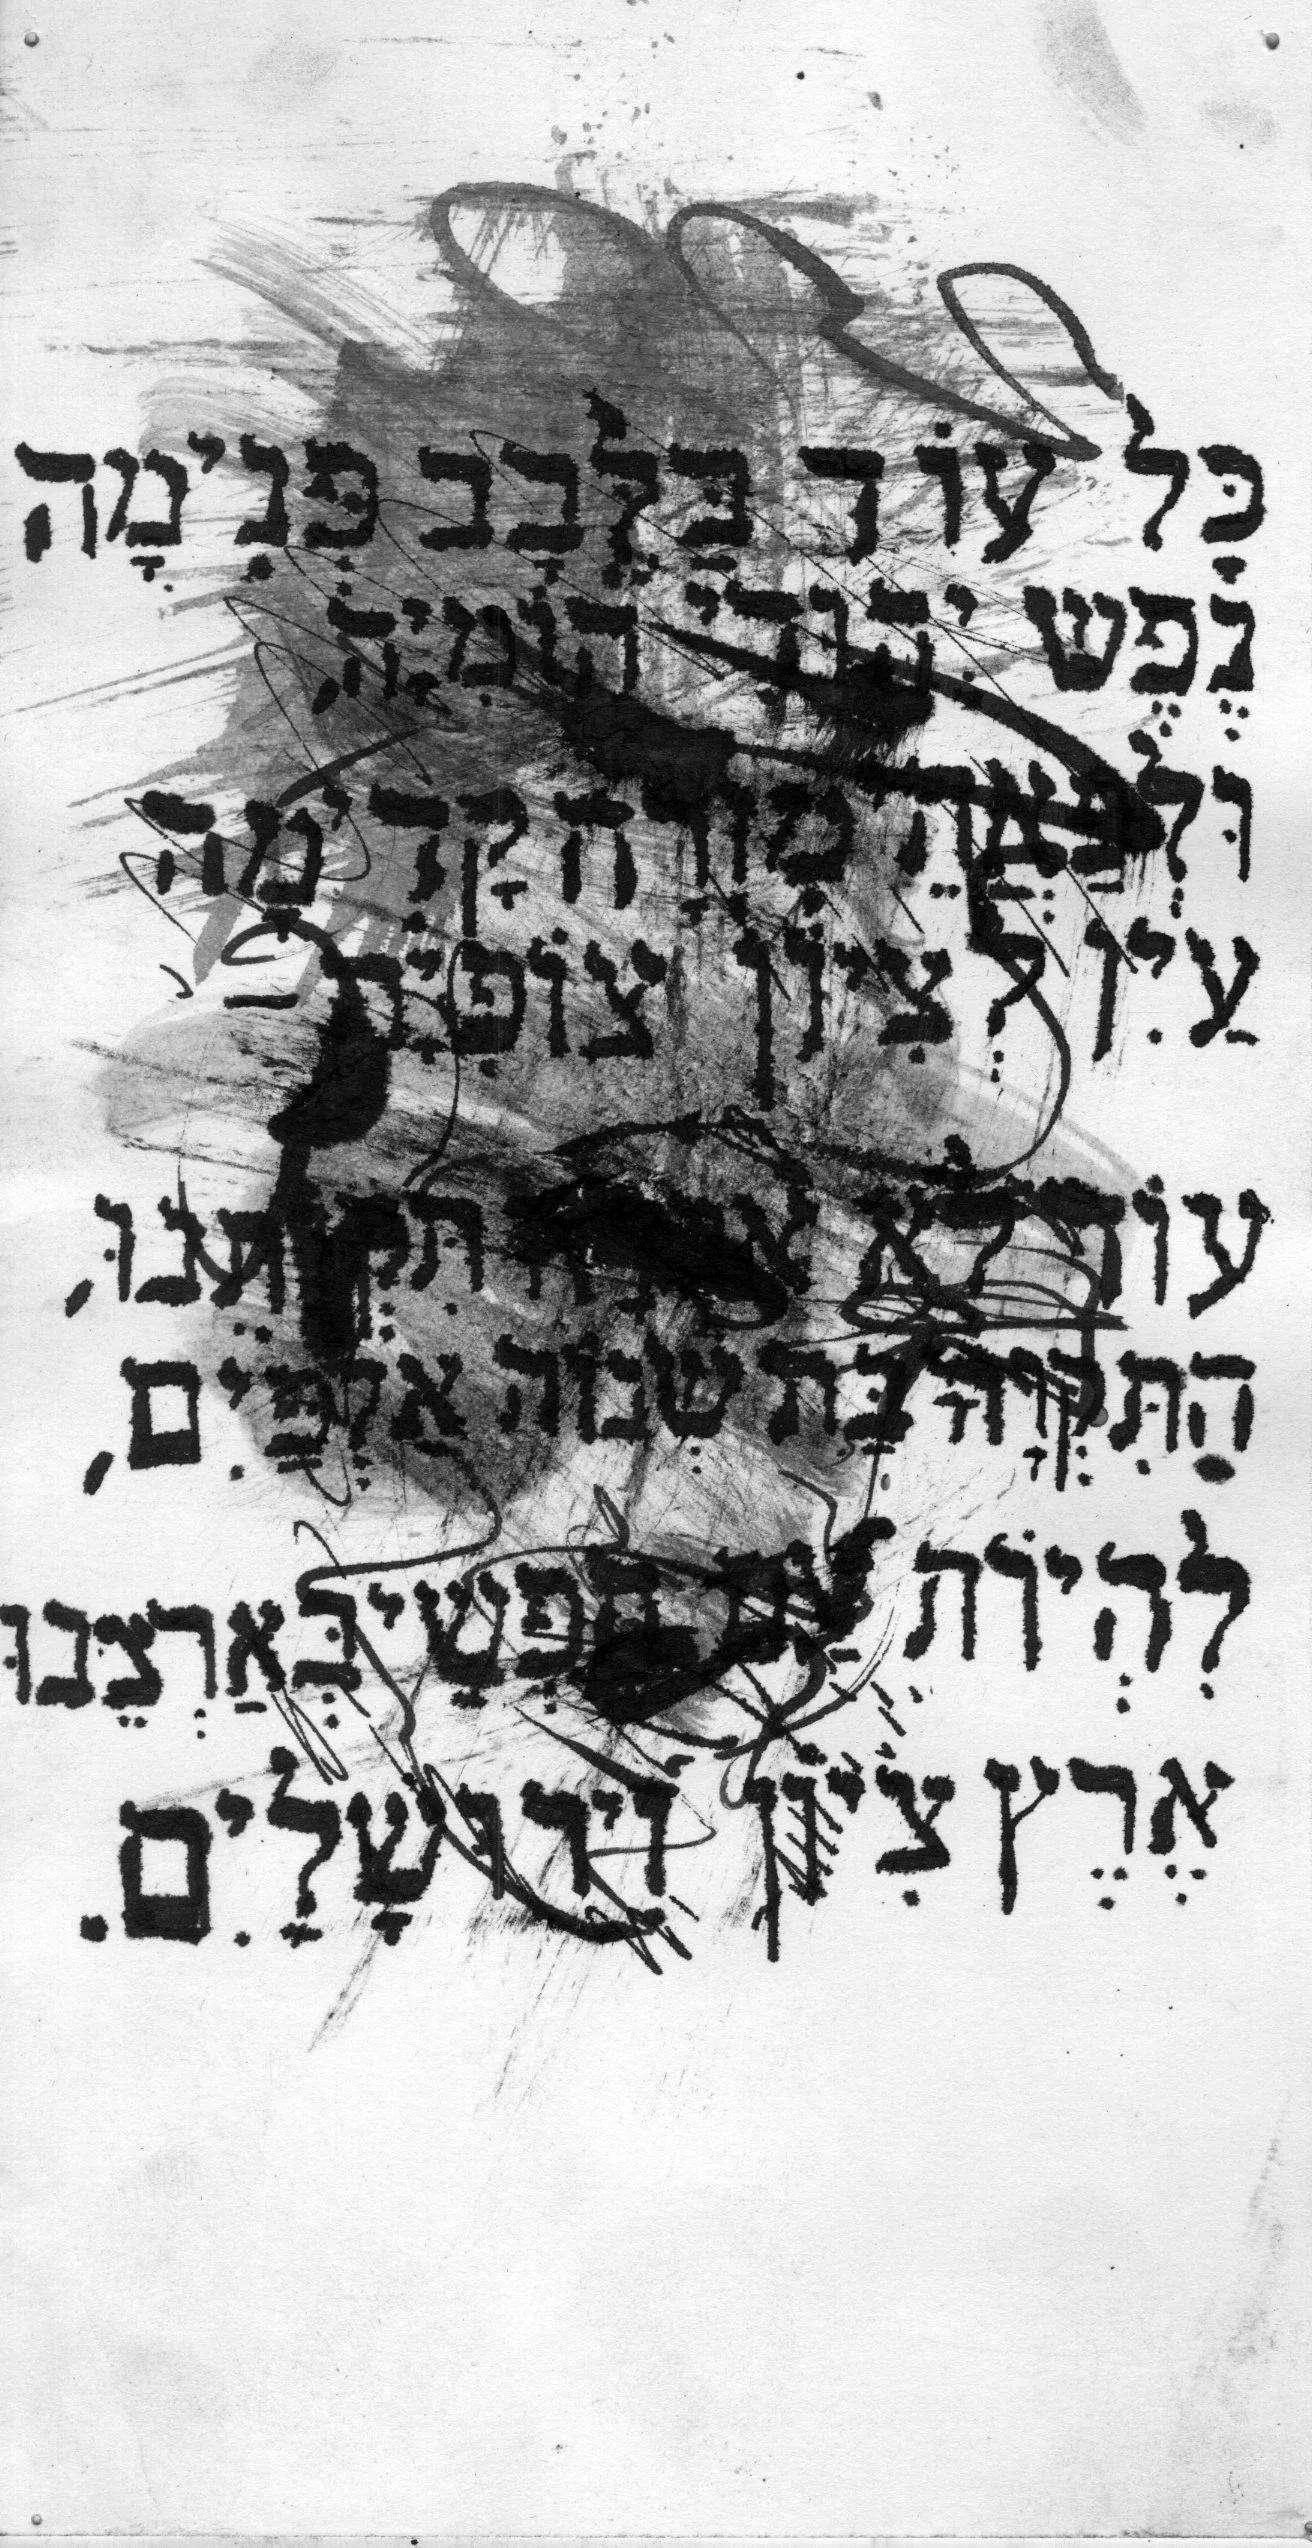 כָּל עוֹד בַּלֵּבָב פְּנִימָה
נֶפֶשׁ יְהוּדִי הוֹמִיָּה,
וּלְפַאֲתֵי מִזְרָח קָדִימָה
עַיִן לְצִיּוֹן צוֹפִיָּה
עוֹד לֹא אָבְדָה תִּקְוָתֵנוּ,
הַתִּקְוָה בַּת שְׁנוֹת אַלְפַּיִם,
לִהְיוֹת עַם חָפְשִׁי בְּאַרְצֵנוּ
אֶרֶץ צִיּוֹן וִירוּשָׁלַיִם.